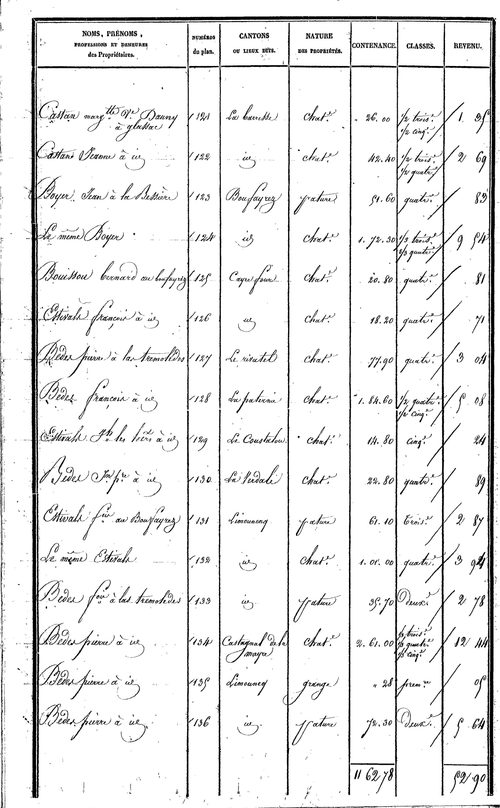 NOMS, PRÉNOMS,
PROFESSIONS ET DEMEURES
des Propriétaires.
NUMÉROS
du plan.
CANTONS
OU LIEUX DITS.
NATURE
DES PROPRIÉTÉS.
CONTENANCE.
CLASSES.
REVENU.
Castan marg.tte V.e Dauny 121 La barrette chat.e 26.00 1/2 trois.e 1 35
à glassac 1/2 cinq.e
Castan Jerome à id 122 id chat.e 42.40 1/2 trois.e 2 69
1/2 quatr.e
Boyer Jean à la Bessière 123 Boufayrez pature 51.60 quatr.e 83
Le même Boyer 124 id chat.e 1.72.30 1/3 trois.e 9 54
2/3 quatr.e
Bouissou bernard au boufayrez 125 Cayre four chat.e 20.80 quatr.e 81
Estivals françois à id 126 id chat.e 18.20 quatr.e 71
Bedes pierre à las tremoledes 127 Le chat.e 77.90 quatr.e 3 04
Bedes françois à id 128 La paterne chat.e 1.84.60 1/2 quatr.e 5 08
1/2 cinq.e
Estivals les à id 129 Le Coustalou chat.e 14.80 cinq.e 24
Bedes p.re à id 130 La Verdale chat.e 22.80 quatr.e 89
Estivals f.ois au Boufayrez 131 Limouneq pature 61.10 trois.e 2 87
Le même Estivals 132 id chat.e 1.01.00 quatr.e 3 94
Bedes f.ois à las tremoledes 133 id pature 35.70 Deux.e 2 78
Bedes pierre à id 134 Castagnal de la chat.e 2.61.00 1/3 trois.e 12 44
mayre 1/3 quatr.e
1/3 cinq.e
Bedes pierre à id 135 Limouneq grange " 28 prem.re 05
Bedes pierre à id 136 id pature 72.30 Deux.e 5 64
11 62.78 52 90